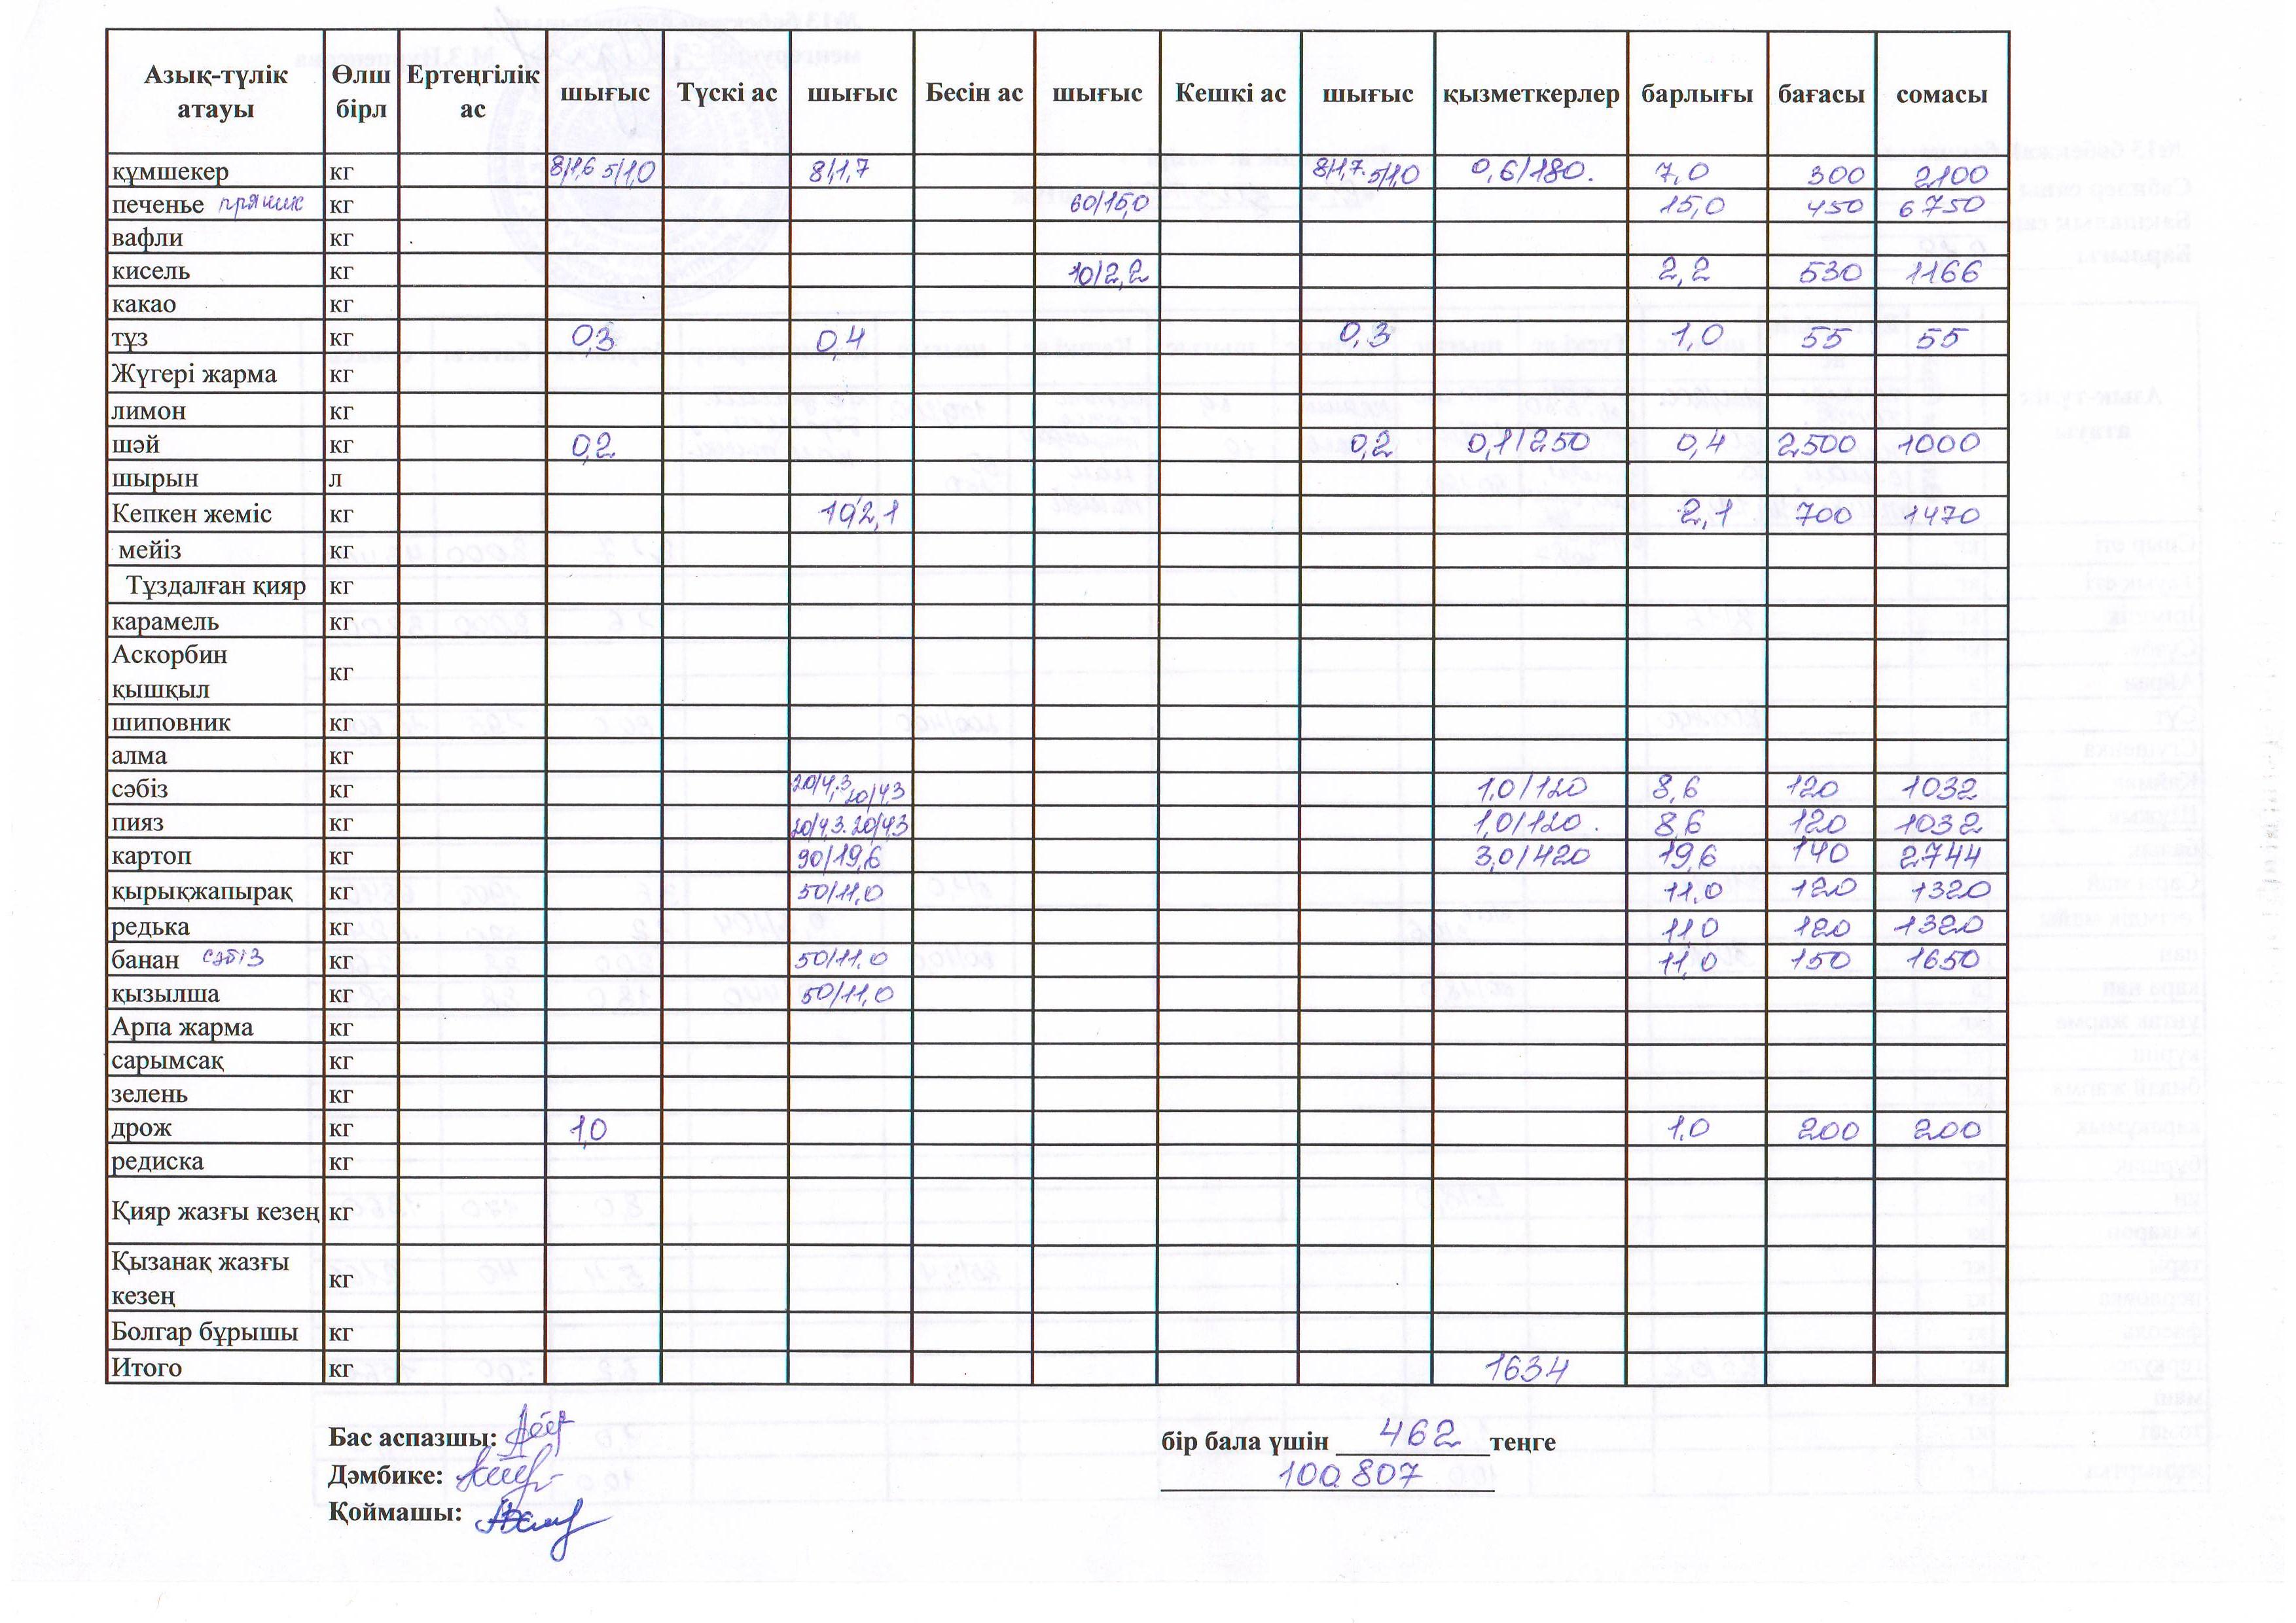 Азық-түлік атауы Өлш бірл Ертеңгілік ас шығыс Түскі ас шығыс Бесін ас шығыс Кешкі ас шығыс қызметкерлер барлығы бағасы сомасы
құмшекер кг 8/1,6 5/1,0 8/1,7 8/1,7. 5/1,0 0,6/180. 7,0 300 2100
печенье пряник кг 60/15,0 15,0 450 6750
вафли кг
кисель кг 10/2,2 2,2 530 1166
какао кг
тұз кг 0,3 0,4 0,3 1,0 55 55
Жүгері жарма кг
лимон кг
шәй кг 0,2 0,2 0,1/250 0,4 2500 1000
шырын л
Кепкен жеміс кг 10/2,1 2,1 700 1470
мейіз кг
Тұздалған қияр кг
карамель кг
Аскорбин қышқыл кг
шиповник кг
алма кг
сәбіз кг 20/4,3 20/4,3 1,0/120 8,6 120 1032
пияз кг 20/4,3. 20/4,3 1,0/120. 8,6 120 1032
картоп кг 90/19,6 3,0/420 19,6 140 2744
қырықжапырақ кг 50/11,0 11,0 120 1320
редька кг 11,0 120 1320
банан сәбіз кг 50/11,0 11,0 150 1650
қызылша кг 50/11,0
Арпа жарма кг
сарымсақ кг
зелень кг
дрож кг 1,0 1,0 200 200
редиска кг
Қияр жазғы кезең кг
Қызанақ жазғы кезең кг
Болгар бұрышы кг
Итого кг 1634
Бас аспазшы:
бір бала үшін 462 теңге
Дәмбике:
100.807
Қоймашы: